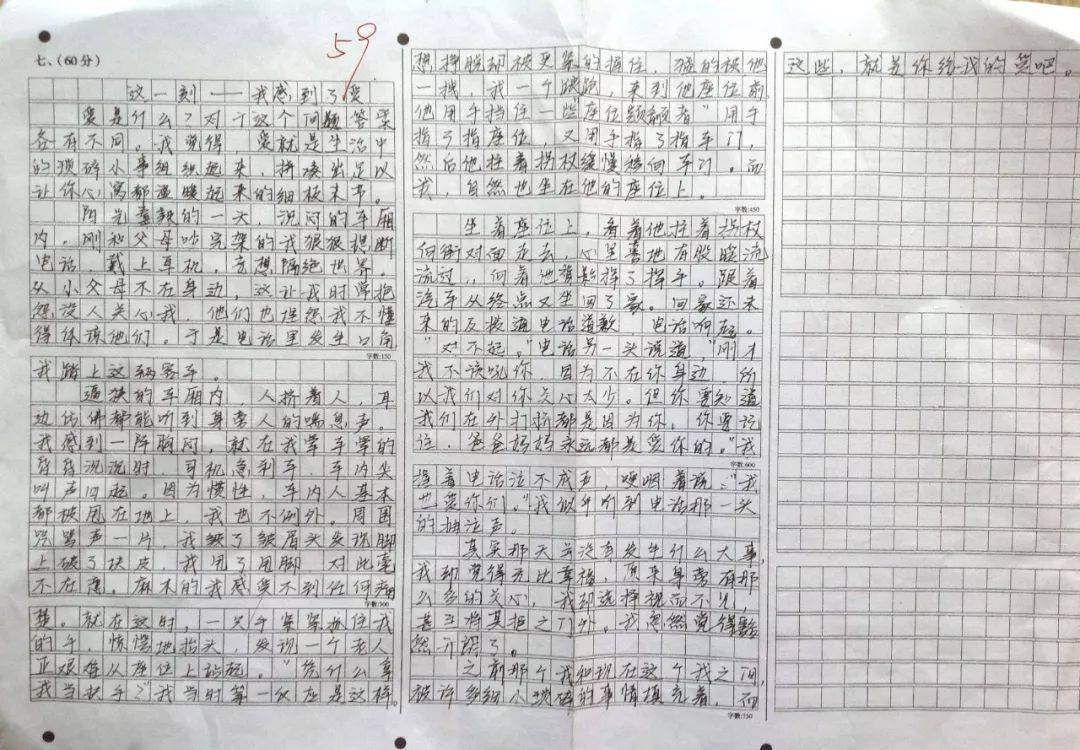 七、(60分)
59
这一刻——我感到了爱
爱是什么?对于这个问题答案
各有不同。我觉得,爱就是生活中
的琐碎小事组织起来,拼凑出足以
让你心窝都温暖起来的细枝末节。
阳光毒辣的一天,沉闷的车厢
内。刚和父母吵完架的我狠狠挂断
电话,戴上耳机,妄想隔绝世界。
从小父母不在身边,这让我时常抱
怨没人关心我,他们也埋怨我不懂
得体谅他们。于是电话里发生口角
字数:150
我踏上这辆客车。
逼狭的车厢内,人挤着人,耳
边仿佛都能听到身旁人的喘息声。
我感到一阵胸闷,就在我晕车晕的
昏昏沉沉时,司机急刹车,车内尖
叫声四起。因为惯性,车内人基本
都被甩在地上,我也不例外。周围
咒骂声一片,我皱了皱眉头发现脚
上破了块皮,我甩了甩脚,对此毫
不在意。麻木的我感受不到任何痛
字数:300
楚。就在这时,一只手紧紧抓住我
的手,惊慌地抬头,发现一个老人
正艰难从座位上站起。"凭什么拿
我当扶手?"我当时第一反应是这样。
想挣脱却被更紧的握住,猛的被他
一拽,我一个踉跄,来到他座位前
他用手挡住一些"座位觊觎者"用手
指了指座位,又用手指了指车门,
然后他拄着拐杖缓慢移向车门。而
我,自然也坐在他的座位上。
字数:450
坐着座位上,看着他拄着拐杖
向街对面走去,心里喜地有股暖流
流过,向着他背影挥了挥手。跟着
汽车从终点又坐回了家。回家还未
来的及拨通电话道歉,电话响起。
"对不起。"电话另一头说道,"刚才
我不该吼你,因为不在你身边,所
以我们对你关心太少。但你要知道
我们在外打拼都是因为你,你要记
住,爸爸妈妈永远都是爱你的。"我
字数:600
握着电话泣不成声,哽咽着说:"我
也爱你们。"我似乎听到电话那一头
的抽泣声。
其实那天并没有发生什么大事,
我却觉得无比幸福,原来身旁有那
么多的关心,我却选择视而不见,
甚至将其拒之门外。我忽然觉得豁
然开朗了。
之前那个我和现在这个我之间,
被许多细小琐碎的事情填充着,而
字数:750
这些,就是你给我的爱吧。